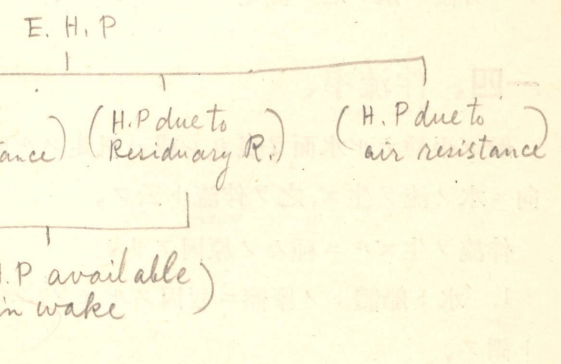 E. H. P
(H.P due to
Residuary R.)
(H. P due to
air resistance)
H.P available)
in wake